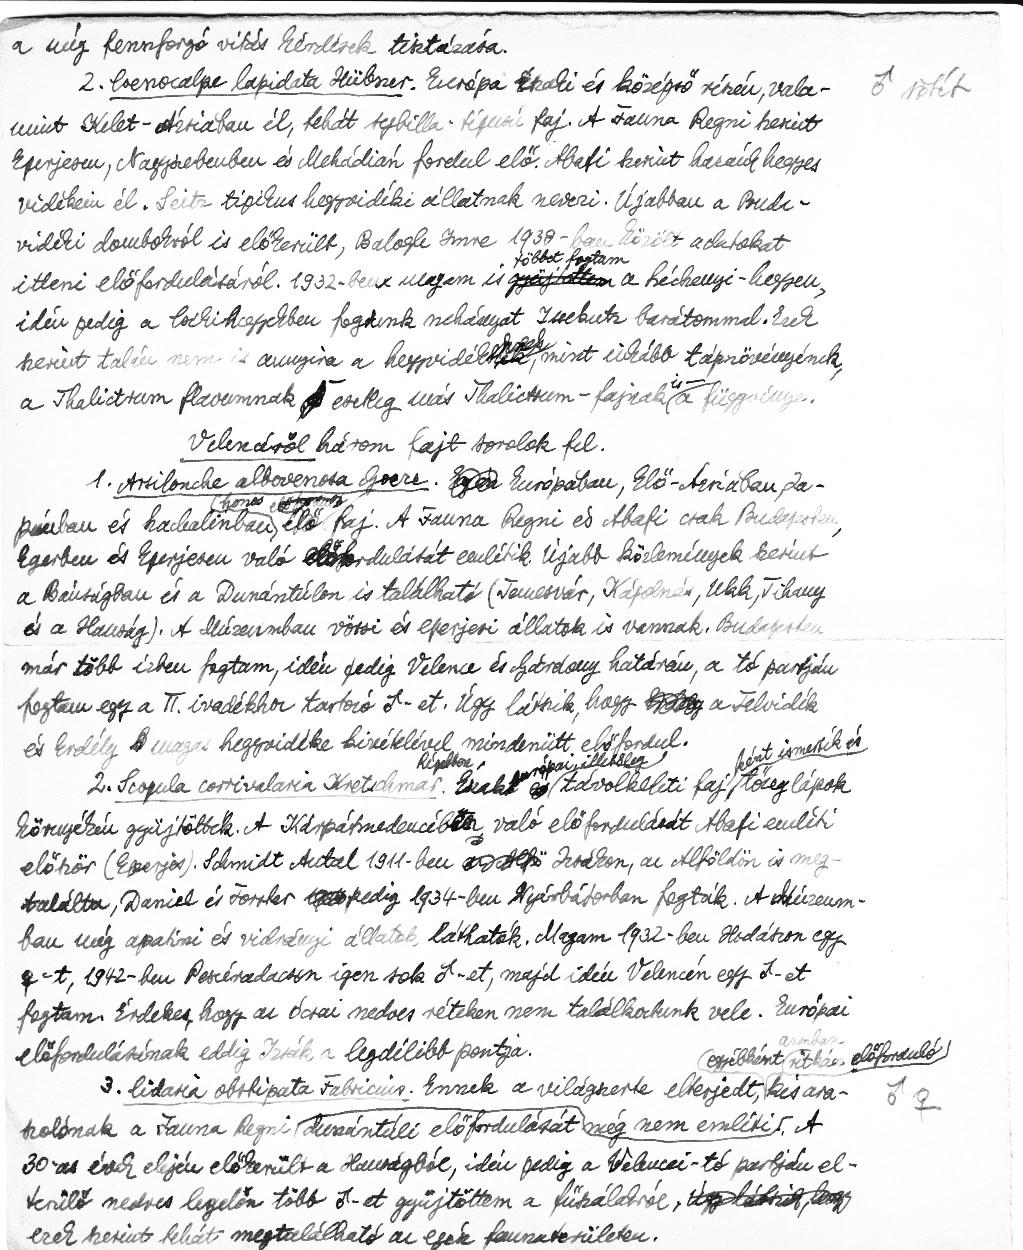 a még fennforgó vitás kérdések tisztázása.
2. Coenocalpe lapidata Hübner. Európa északi és középső részén, vala-
♂ sötét
mint Kelet-Ázsiában él, tehát típusú faj. A Fauna Regni szerint
Eperjesen, Nagyszebenben és Mehádián fordul elő. Abafi szerint hazánk hegyes
vidékein él. Seitz tipikus hegyvidéki állatnak nevezi. Újabban a Buda-
vidéki dombokról is előkerült, Balogh Imre 1938-ban közölt adatokat
többet fogtam
itteni előfordulásáról. 1932-ben magam is gyűjtöttem a Széchenyi-hegyen,
idén pedig a Csiki hegyekben fogtunk néhányat Issekutz barátommal. Ezek
szerint talán nem is annyira a hegyvidéknek, mint inkább tápnövényének,
a Thalictrum flavumnak esetleg más Thalictrum-fajnak is a függvénye.
Velencéről három fajt sorolok fel.
1. Arsilonche albovenosa Goeze. Európában, Elő-Ázsiában, Ja-
(honos
pánban és Szachalinban) élő faj. A Fauna Regni és Abafi csak Budapesten,
Egerben és Eperjesen való előfordulását említik. Újabb közlemények szerint
a Bánságban és a Dunántúlon is található (Temesvár, Kápolnás, Ukk, Tihany
és a Hanság). A Múzeumban vörsi és eperjesi állatok is vannak. Budapesten
már több ízben fogtam, idén pedig Velence és Gárdony határán, a tó partján
fogtam egy a II. ivadékhoz tartozó ♂-et. Úgy látszik, hogy a Felvidék
és Erdély magas hegyvidéke kivételével mindenütt előfordul.
európai, illetőleg
ként ismerik és
2. Scopula corrivalaria Kretschmar. távolkeleti faj tőzeglápok
környékén gyűjtötték. A Kárpátmedencében való előfordulását Abafi említi
először (Eperjes). Schmidt Antal 1911-ben Izsákon, az Alföldön is meg-
találta, Daniel és Forster pedig 1934-ben Nyárbátorban fogták. A Múzeum-
ban még apatini és vidrányi állatok láthatók. Magam 1932-ben Hodászon egy
♀-t, 1942-ben Peszéradacson igen sok ♂-et, majd idén Velencén egy ♂-et
fogtam. Érdekes, hogy az ócsai nedves réteken nem találkoztunk vele. Európai
előfordulásának eddig Izsák a legdélibb pontja.
azonban
(egyébként ritkán előforduló)
3. Cidaria obstipata Fabricius. Ennek a világszerte elterjedt, kis ara-
♂ ♀
szolónak a Fauna Regni dunántúli előfordulását még nem említi. A
30-as évek elején előkerült a Hanságból, idén pedig a Velencei-tó partján el-
terülő nedves legelőn több ♂-et gyűjtöttem a fűszálakról, úgy látszik, hogy
ezek szerint tehát megtalálható az egész faunaterületen.